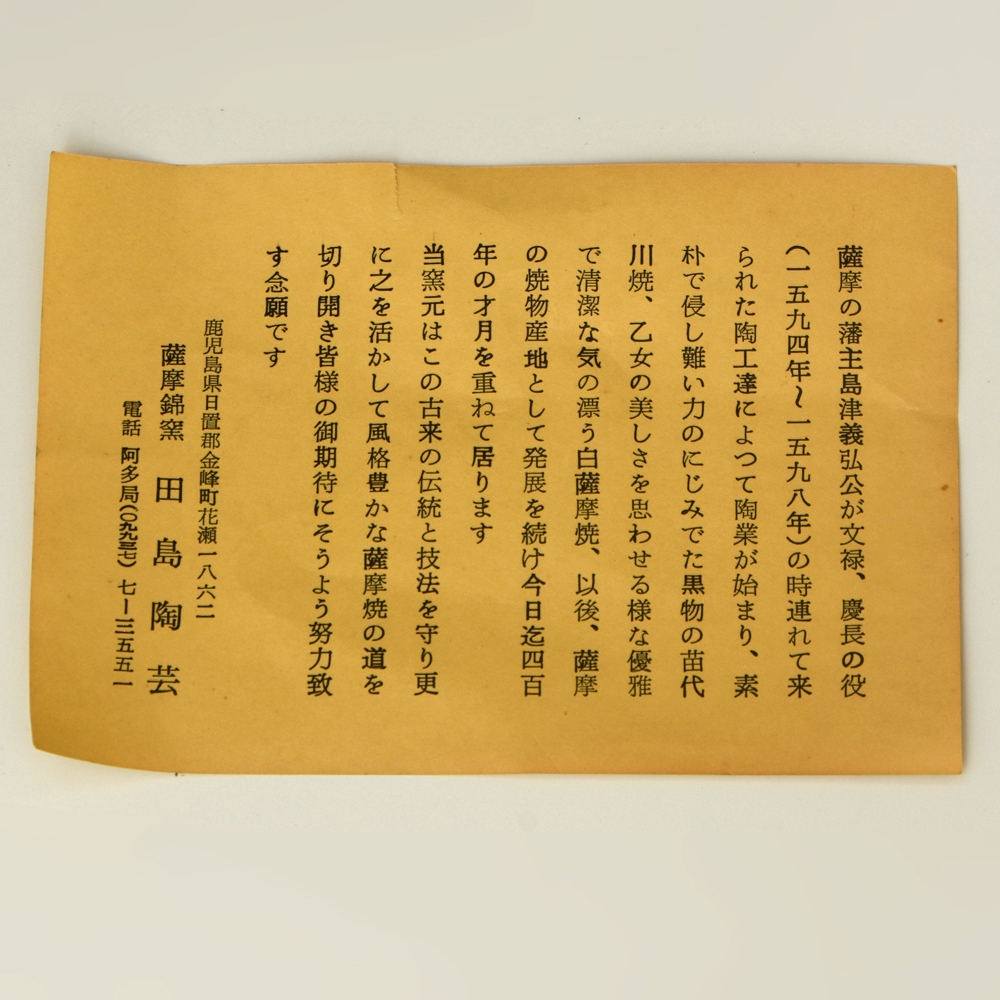 薩摩の藩主島津義弘公が文禄、慶長の役
(一五九四年～一五九八年)の時連れて来
られた陶工達によつて陶業が始まり、素
朴で侵し難い力のにじみでた黒物の苗代
川焼、乙女の美しさを思わせる様な優雅
で清潔な気の漂う白薩摩焼、以後、薩摩
の焼物産地として発展を続け今日迄四百
年の才月を重ねて居ります
当窯元はこの古来の伝統と技法を守り更
に之を活かして風格豊かな薩摩焼の道を
切り開き皆様の御期待にそうよう努力致
す念願です
鹿児島県日置郡金峰町花瀬一八六二
薩摩錦窯 田島陶芸
電話 阿多局(〇九九三七)七―三五五一